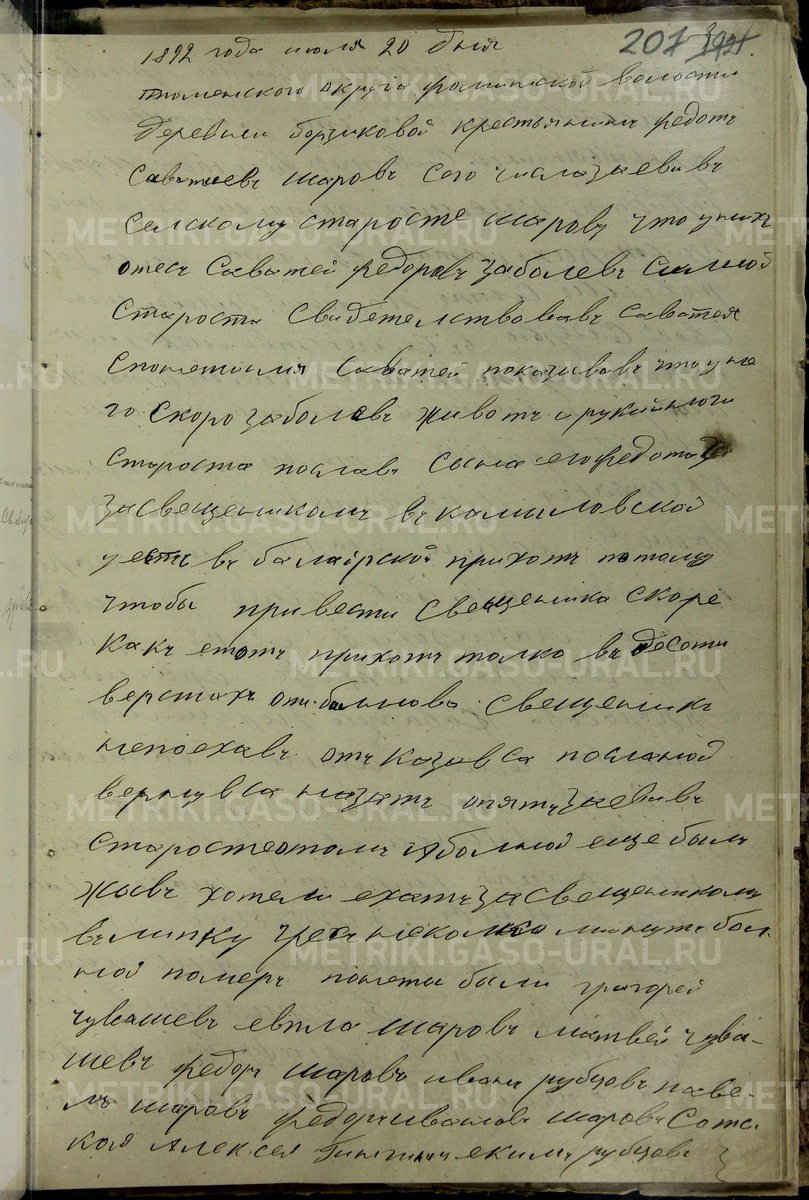 207
1892 года июля 20 дня
тюменского округа фоминской волости
Деревни борзиковой крестьянинъ федотъ
Саватиевъ шаровъ Сего числа заевивъ
Селскому старосте шарову что унихъ
отецъ Саватей федоровъ заболевъ Силной
Староста Свидетелствовавъ Саватея
Спонетоими Саватей показывавъ что уне
го Скоро заболевъ животъ и руки и ноги
Староста пославъ Сына его федота
за Свещеникомъ в камыловской
уестъ въ балаирской прихотъ потому
чтобы привести Свещеника Скоре
Какъ етотъ прихотъ толко въ десети
верстахъ отъ болнова Свещеникъ
непоехавъ отъ казавса посланой
вернувса назатъ опять заевивъ
Старосте отомъ а болной еще былъ
жывъ хотели ехать за Свещеникомъ
въ липку чресъ несколко минутъ бол
ной померъ понеты были григорей
чувашевъ шаровъ матвей чува-
шевъ федоръ шаровъ иванъ рубцовъ паве-
лъ шаровъ федоръ ивановъ шаровъ Сотс
кой Алексей екимъ рубцовъ
METRIKI.GASO-URAL.RU